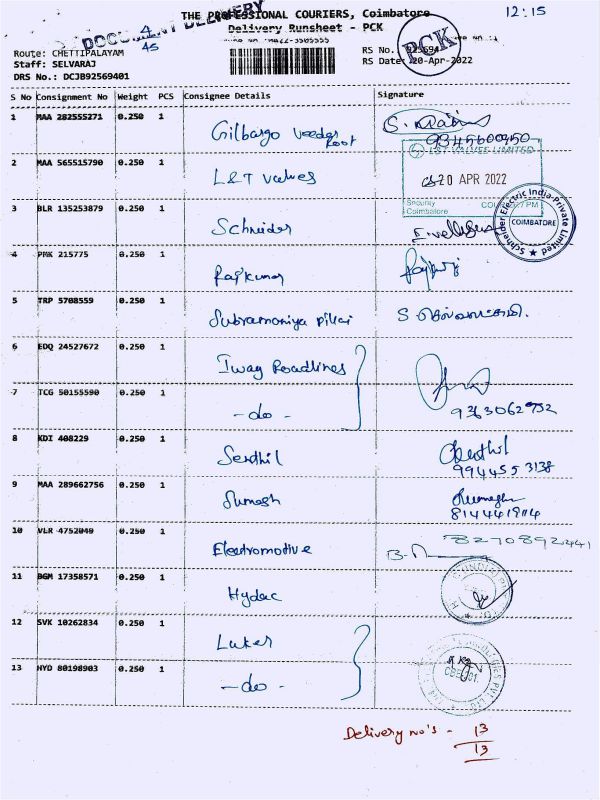 THE PROFESSIONAL COURIERS, Coimbatore
12:15
DOCUMENT DELIVERY
4
45
Delivery Runsheet - PCK
PCK
Route: CHETTIPALAYAM
RS No.
Staff: SELVARAJ
RS Date: 20-Apr-2022
DRS No.: DCJB92569401
S No Consignment No Weight PCS Consignee Details Signature
1 MAA 282555271 0.250 1 Gilbargo Veeder Root
2 MAA 565515790 0.250 1 L&T valves
L&T VALVES LIMITED
20 APR 2022
Security
Coimbatore
3 BLR 135253879 0.250 1 Schnider
Schneider Electric India Private Limited
COIMBATORE
4 PMK 215775 0.250 1 Rajkumar
5 TRP 5708559 0.250 1 Subramoniya Pillai
6 EDQ 24527672 0.250 1 Iway Roadlines
7 TCG 50155590 0.250 1 -do-
8 KDI 408229 0.250 1 Senthil
9944553138
9 MAA 289662756 0.250 1 Sumesh
10 VLR 4752049 0.250 1 Electromotive
8270892441
11 BGM 17358571 0.250 1 Hydac
12 SVK 10262834 0.250 1 Luker
13 HYD 80198903 0.250 1 -do-
Delivery no's - 13
13